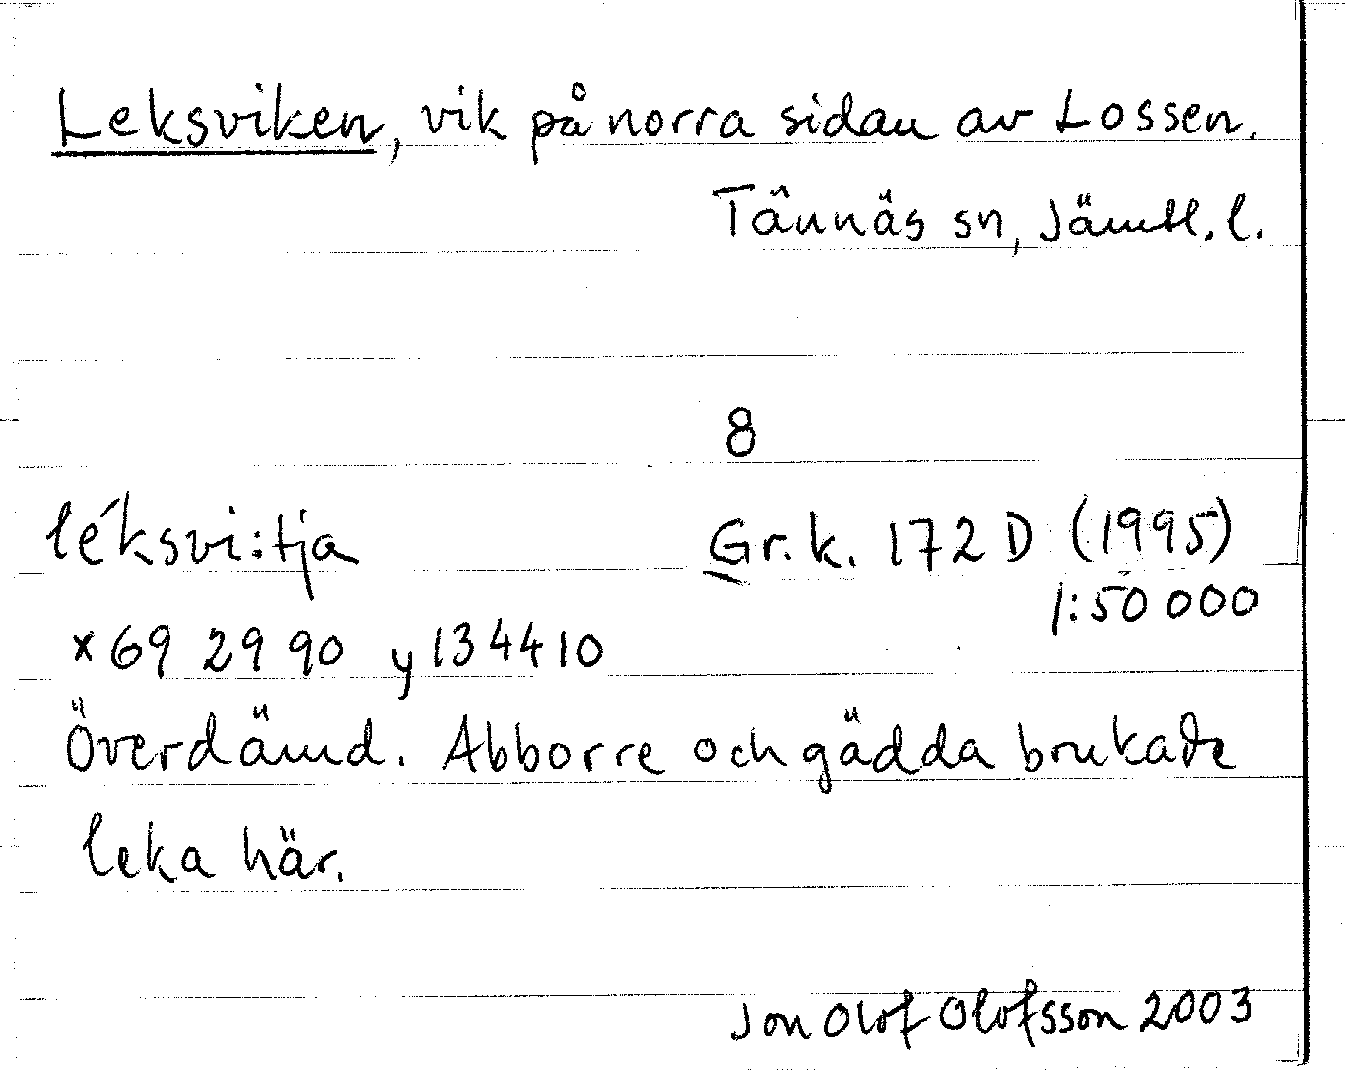 Leksviken, vik på norra sidan av Lossen.
Tännäs sn, Jämtl. l.
8
léksvi:tja Gr.k. 172 D (1995)
1:50 000
x 69 29 90 y 134410
Överdämd. Abborre och gädda brukade
leka här.
Jon Olof Olofsson 2003